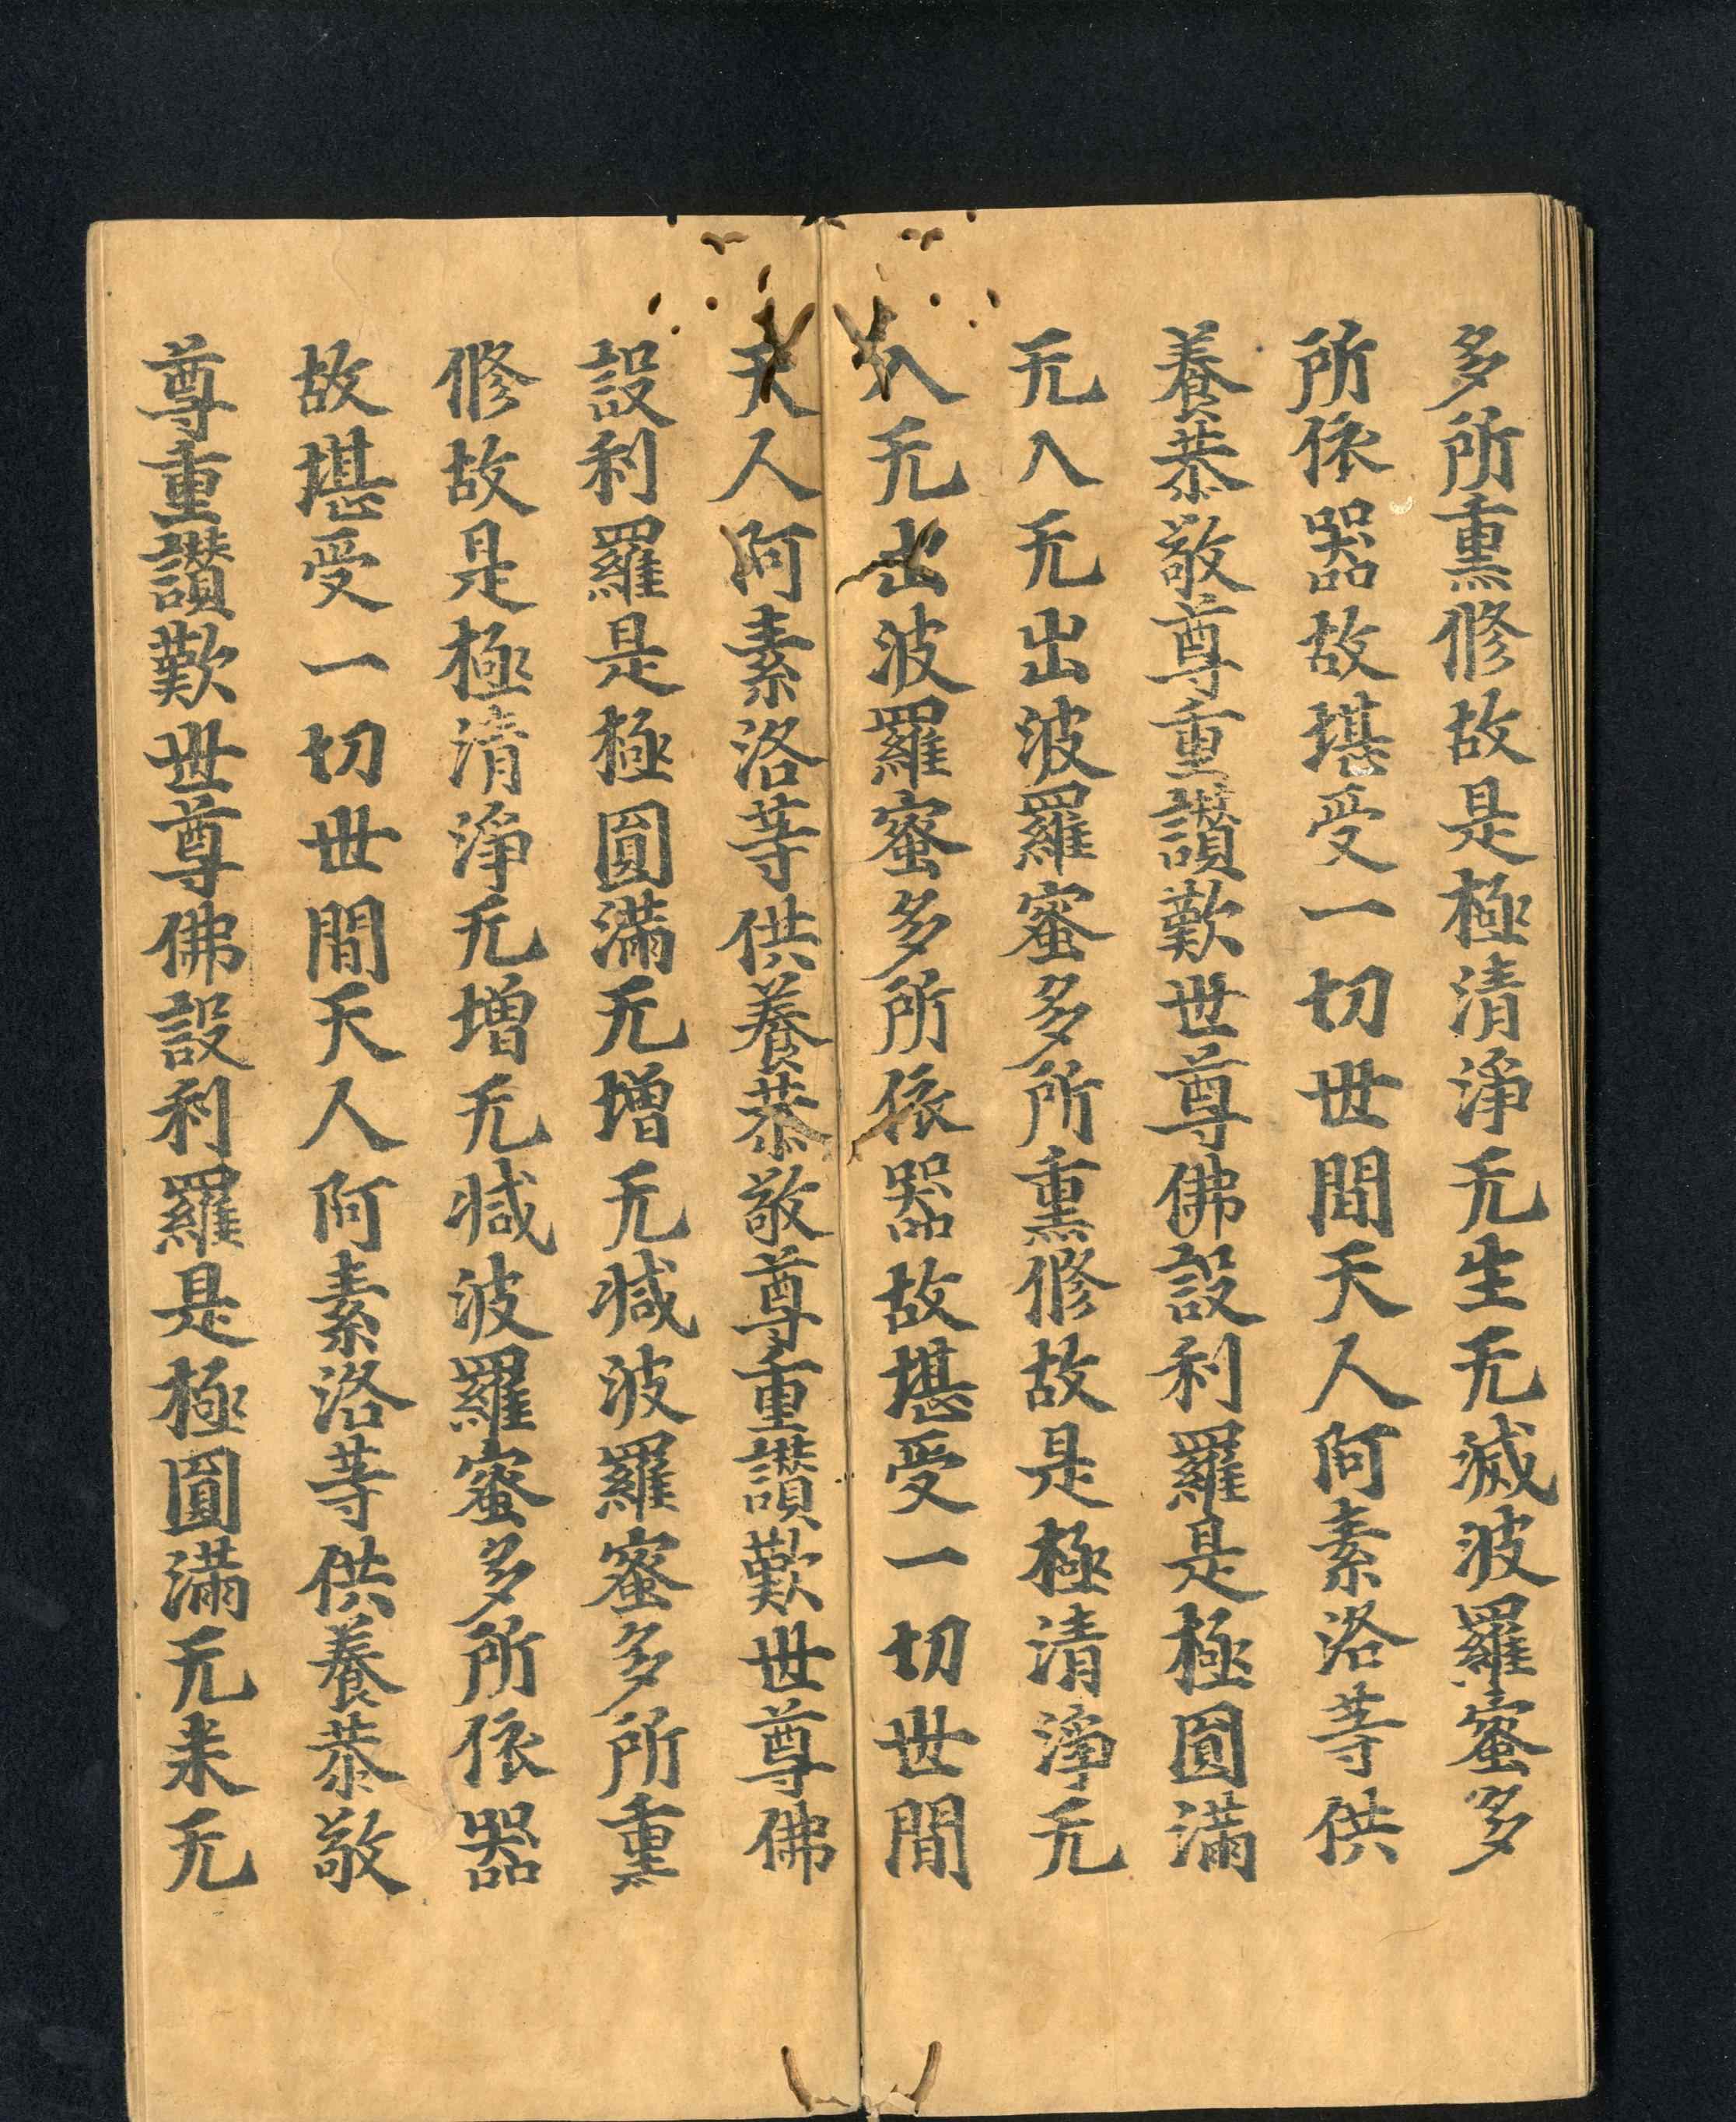 多所熏修故是極清淨无生无滅波羅蜜多
所依器故堪受一切世間天人阿素洛等供
養恭敬尊重讚歎世尊佛設利羅是極圓滿
无入无出波羅蜜多所熏修故是極清淨无
入无出波羅蜜多所依器故堪受一切世間
天人阿素洛等供養恭敬尊重讚歎世尊佛
設利羅是極圓滿无增无減波羅蜜多所熏
修故是極清淨无增无減波羅蜜多所依器
故堪受一切世間天人阿素洛等供養恭敬
尊重讚歎世尊佛設利羅是極圓滿无来无